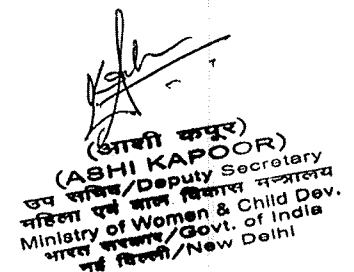 (आशी कपूर)
(ASHI KAPOOR)
उप सचिव/Deputy Secretary
महिला एवं बाल विकास मन्त्रालय
Ministry of Women & Child Dev.
भारत सरकार/Govt. of India
नई दिल्ली/New Delhi